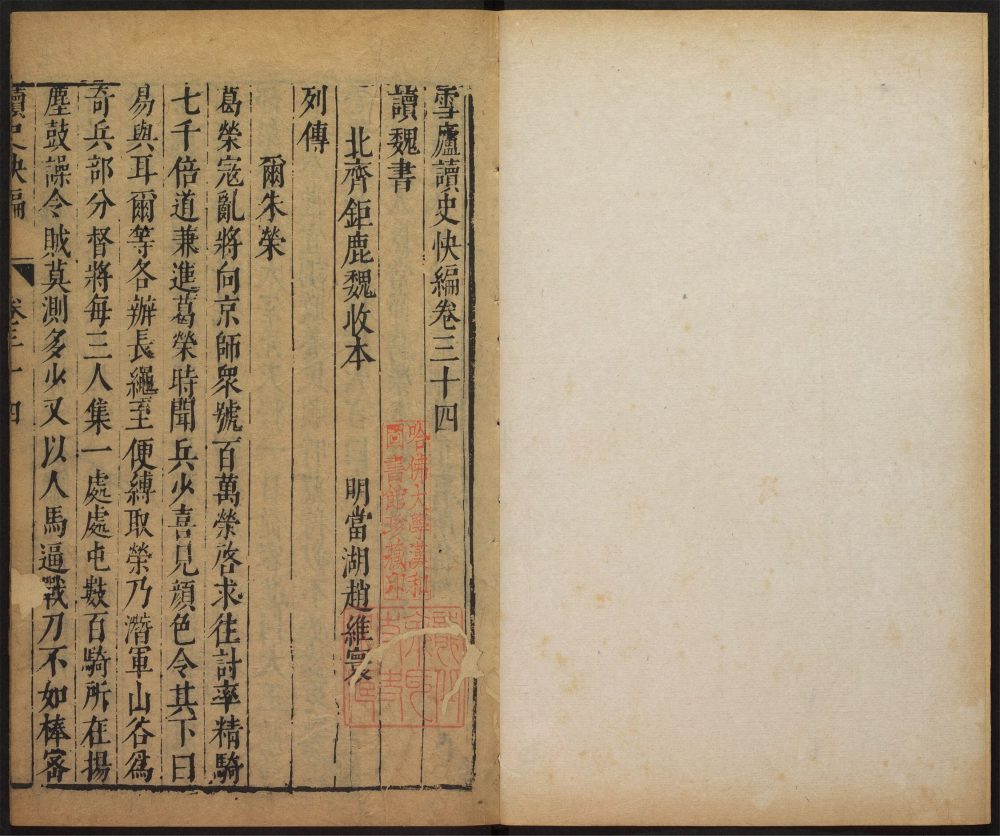 雪廬讀史快編卷三十四
讀魏書
北齊鉅鹿魏收本 明當湖趙維寰
列傳
爾朱榮
葛榮寇亂將向京師衆號百萬榮啓求往討率精騎
七千倍道兼進葛榮時聞兵少喜見顔色令其下曰
易與耳爾等各辦長繩至便縛取榮乃潛軍山谷爲
奇兵部分督將每三人集一處處屯數百騎所在揚
塵鼓譟令賊莫測多少又以人馬逼戰刀不如棒密
讀史快編 卷三十四
哈佛大學漢和
圖書館珍藏印